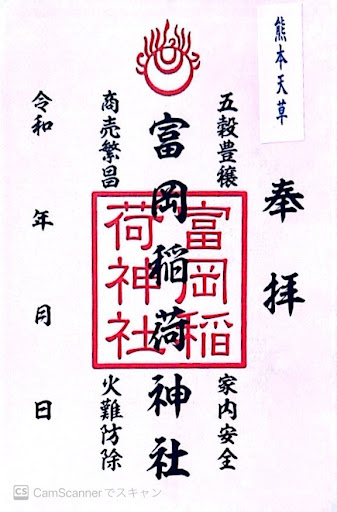 熊本天草
奉拝
五穀豊穣
家内安全
富岡稲荷神社
富岡稲
荷神社
商売繁昌
火難防除
令和 年 月 日
CS CamScannerでスキャン